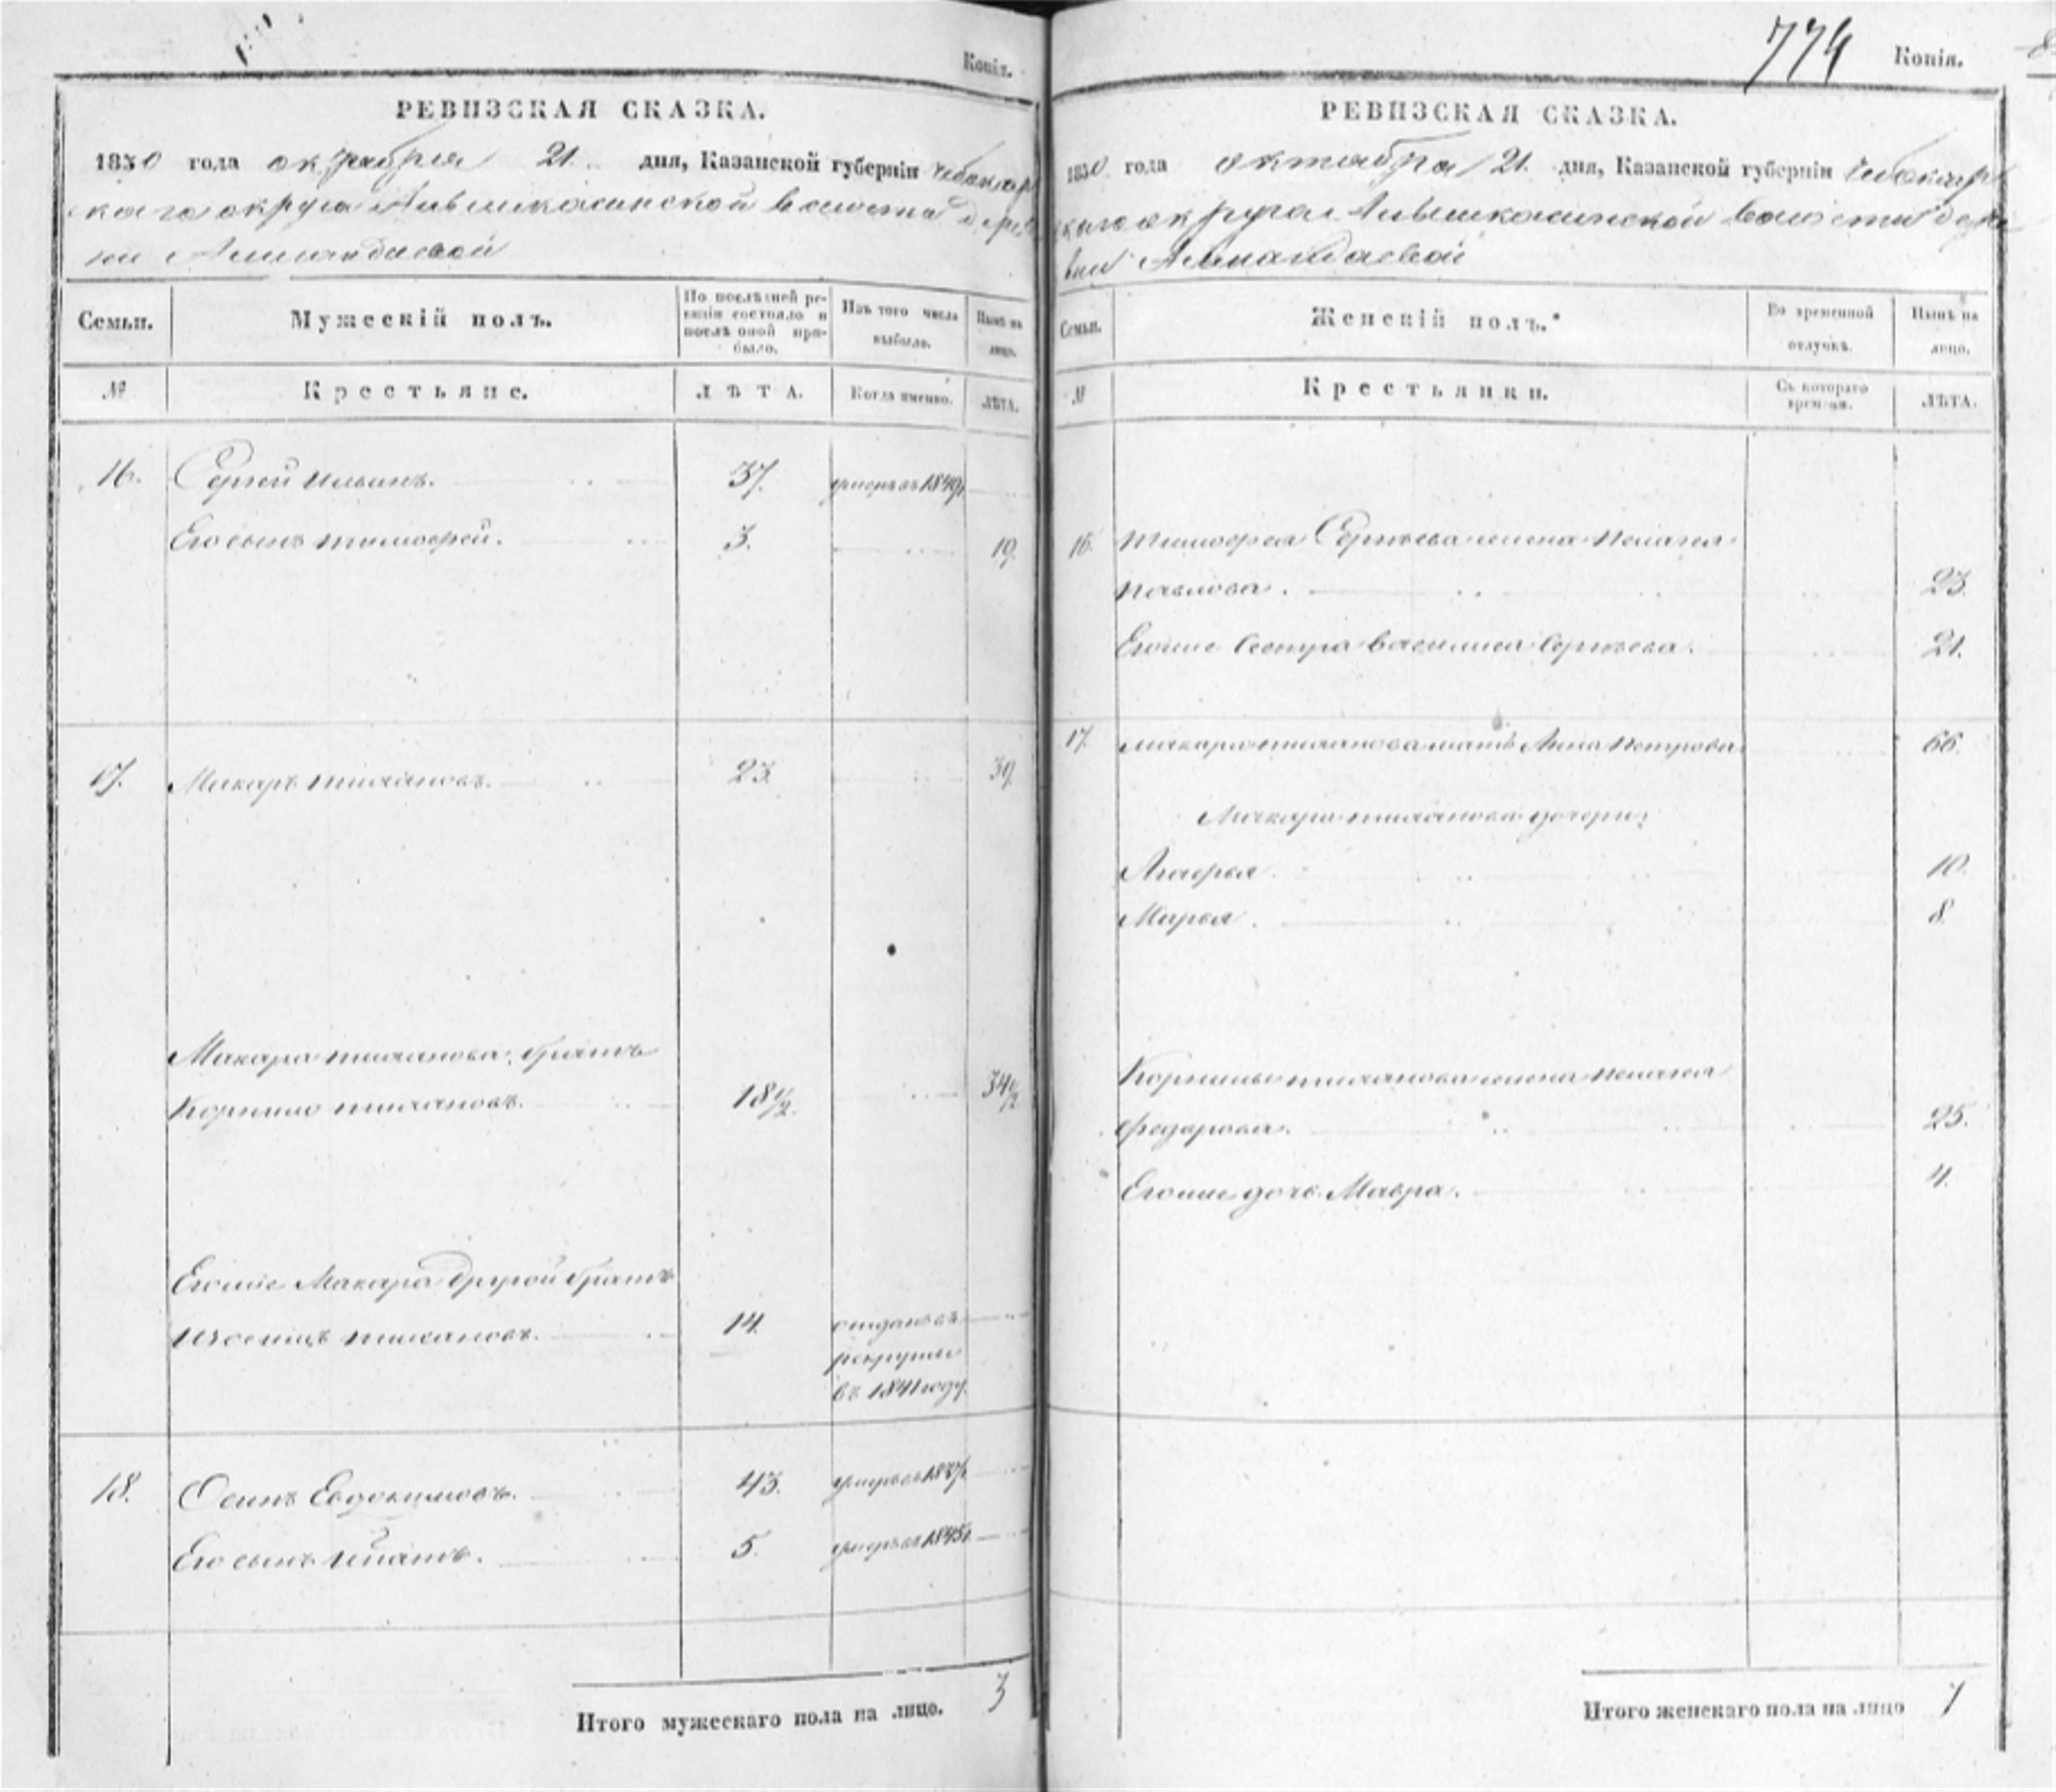 Копія.
РЕВИЗСКАЯ СКАЗКА.
1850 года октября 21. дня, Казанской губерніи Чебоксар
скаго округа волости дерев
ни
Семьи.
Мужескій полъ.
По послѣдней ре-
визіи состояло и
послѣ оной при-
было.
Изъ того числа
выбыло.
Нынѣ на
лицо.
№
Крестьяне.
ЛѢТА.
Когда именно.
ЛѢТА.
16. Сергей Ильинъ. 37. умеръ въ 1849г
Его сынъ Тимофей. 3. 19.
17. Макаръ Тихановъ. 23. 39.
Макара Тиханова братъ
Корнило Тихановъ. 18½. 34½
Егоже Макара другой братъ
Тихановъ. 14. отданъ въ
рекруты
въ 1841 году.
18. Осипъ Евдокимовъ. 43. умеръ въ
Его сынъ Игнатъ. 5. умеръ въ 1845г
Итого мужескаго пола на лицо. 3
774 Копія.
РЕВИЗСКАЯ СКАЗКА.
1850 года октября 21. дня, Казанской губерніи Чебоксар
скаго округа волости дере
вни
Семьи.
Женскій полъ.
Во временной
отлучкѣ.
Нынѣ на
лицо.
№
Крестьянки.
Съ котораго
времени.
ЛѢТА.
16. Тимофея Сергѣева жена Пелагея
Павлова. 23.
Егоже сестра Василиса Сергѣева. 21.
17. Макара Тиханова мать Анна Петрова 66.
Макара Тиханова дочери:
Агафья. 10.
Марья. 8.
Корнилы Тиханова жена Пелагея
Федарова. 25.
Егоже дочь Мавра. 4.
Итого женскаго пола на лицо 7